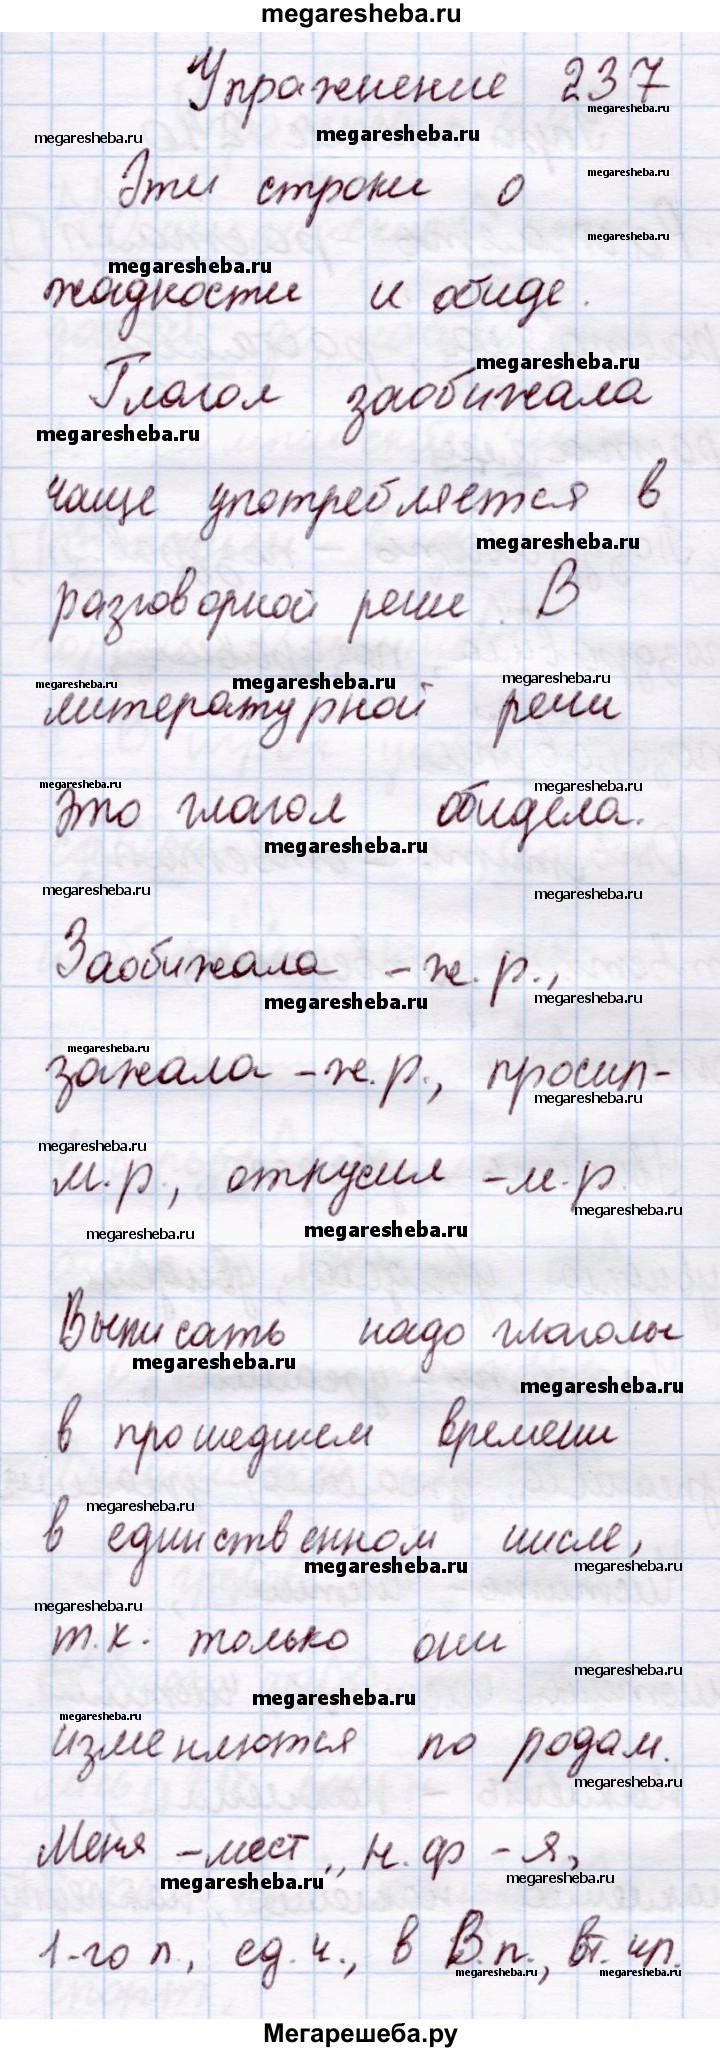 megaresheba.ru
Упражнение 237
Эти строки о
жадности и обиде.
Глагол заобижала
чаще употребляется в
разговорной речи. В
литературной речи
это глагол обидела.
Заобижала - ж.р.,
зажала - ж.р., просил -
м.р., откусил - м.р.
Выписать надо глаголы
в прошедшем времени
в единственном числе,
т.к. только они
изменяются по родам.
Меня - мест., н.ф - я,
1-го л., ед.ч., в В.п., вт. чл.
Мегарешеба.ру